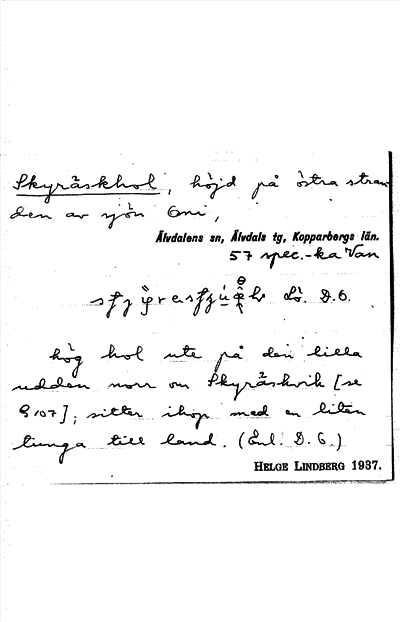 Skyräskhol, höjd på östra stran
den av sjön
Älvdalens sn, Älvdals tg, Kopparbergs län.
57 spec.-ka Van
D.G.
hög hol ute på den lilla
udden norr om Skyräskvik [se
9/07]; sitter ihop med en liten
tunga till land. (Enl. D.G.)
HELGE LINDBERG 1937.